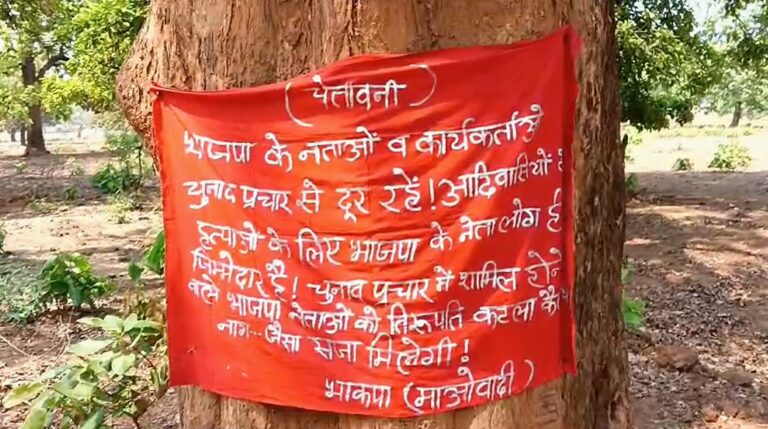 (चेतावनी)
भाजपा के नेताओं व कार्यकर्ताओ
चुनाव प्रचार से दूर रहें! आदिवासियों
हत्याओं के लिए भाजपा के नेता लोग ही
जिम्मेदार है! चुनाव प्रचार में शामिल होने
वाले भाजपा नेताओं को तिरूपति कटला
नाग... जैसा सजा मिलेगी!
भाकपा (माओवादी)